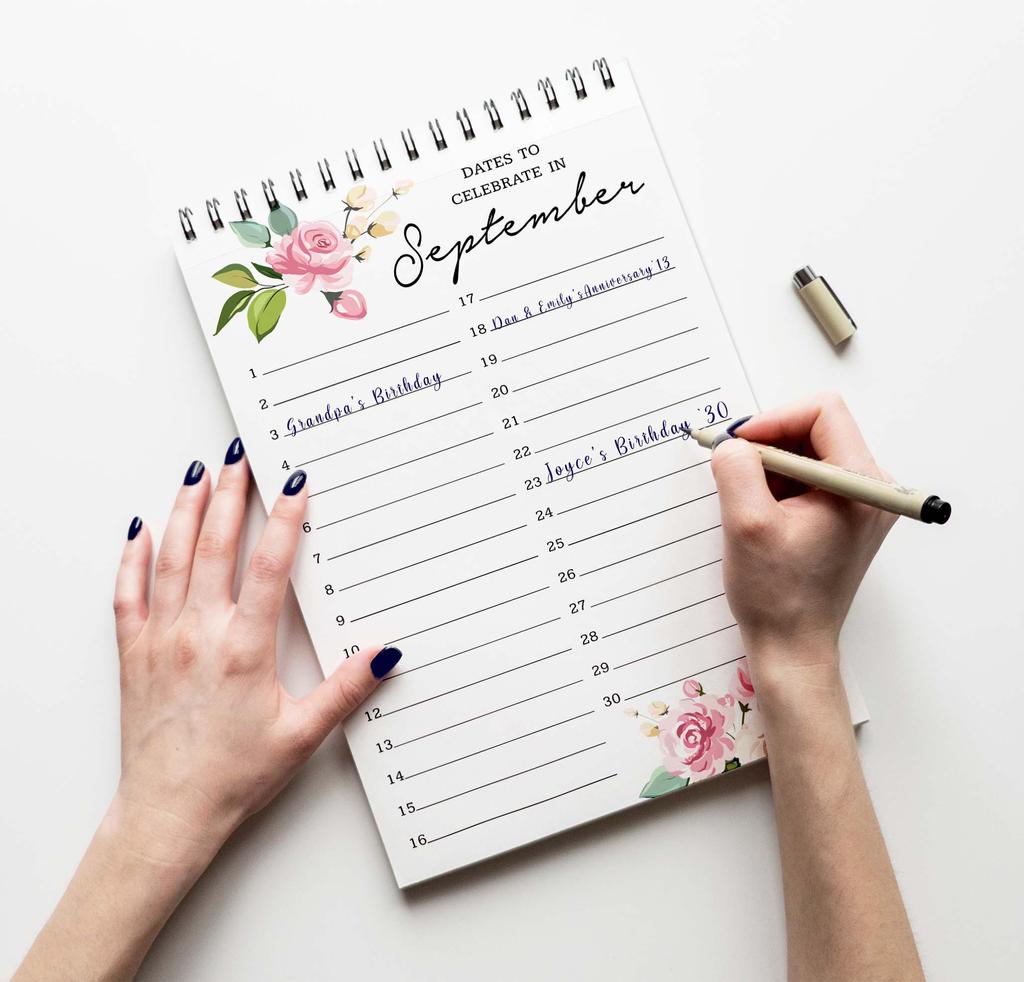 DATES TO
CELEBRATE IN
September
1
2
3 Grandpa's Birthday
4
6
7
8
9
10
12
13
14
15
16
17
18 Dan & Emily's Anniversary '13
19
20
21
22
23 Joyce's Birthday '30
24
25
26
27
28
29
30